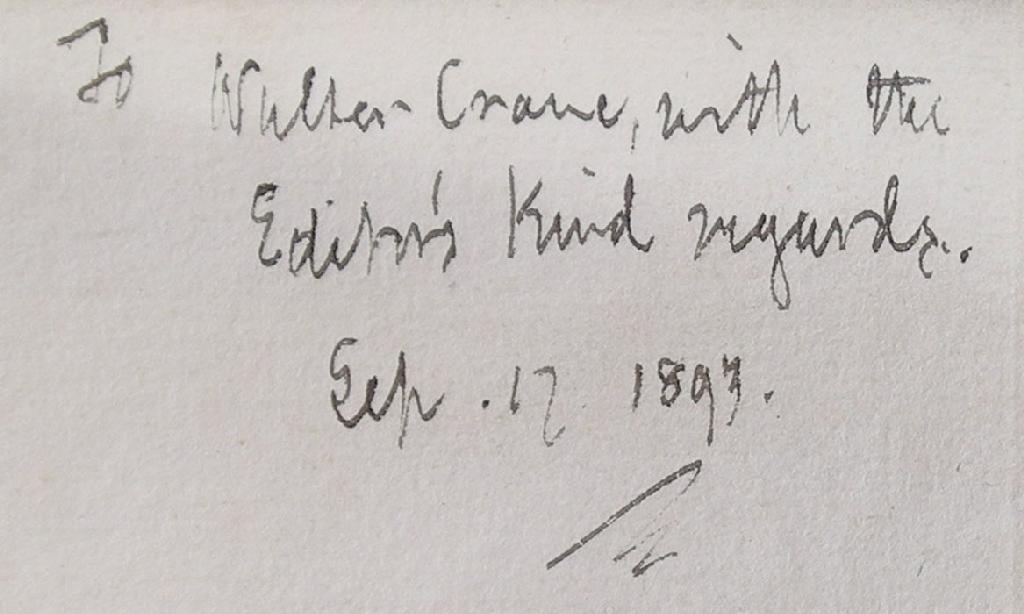 To Walter Crane, with the
Editor's kind regards.
Sep. 17 1897.